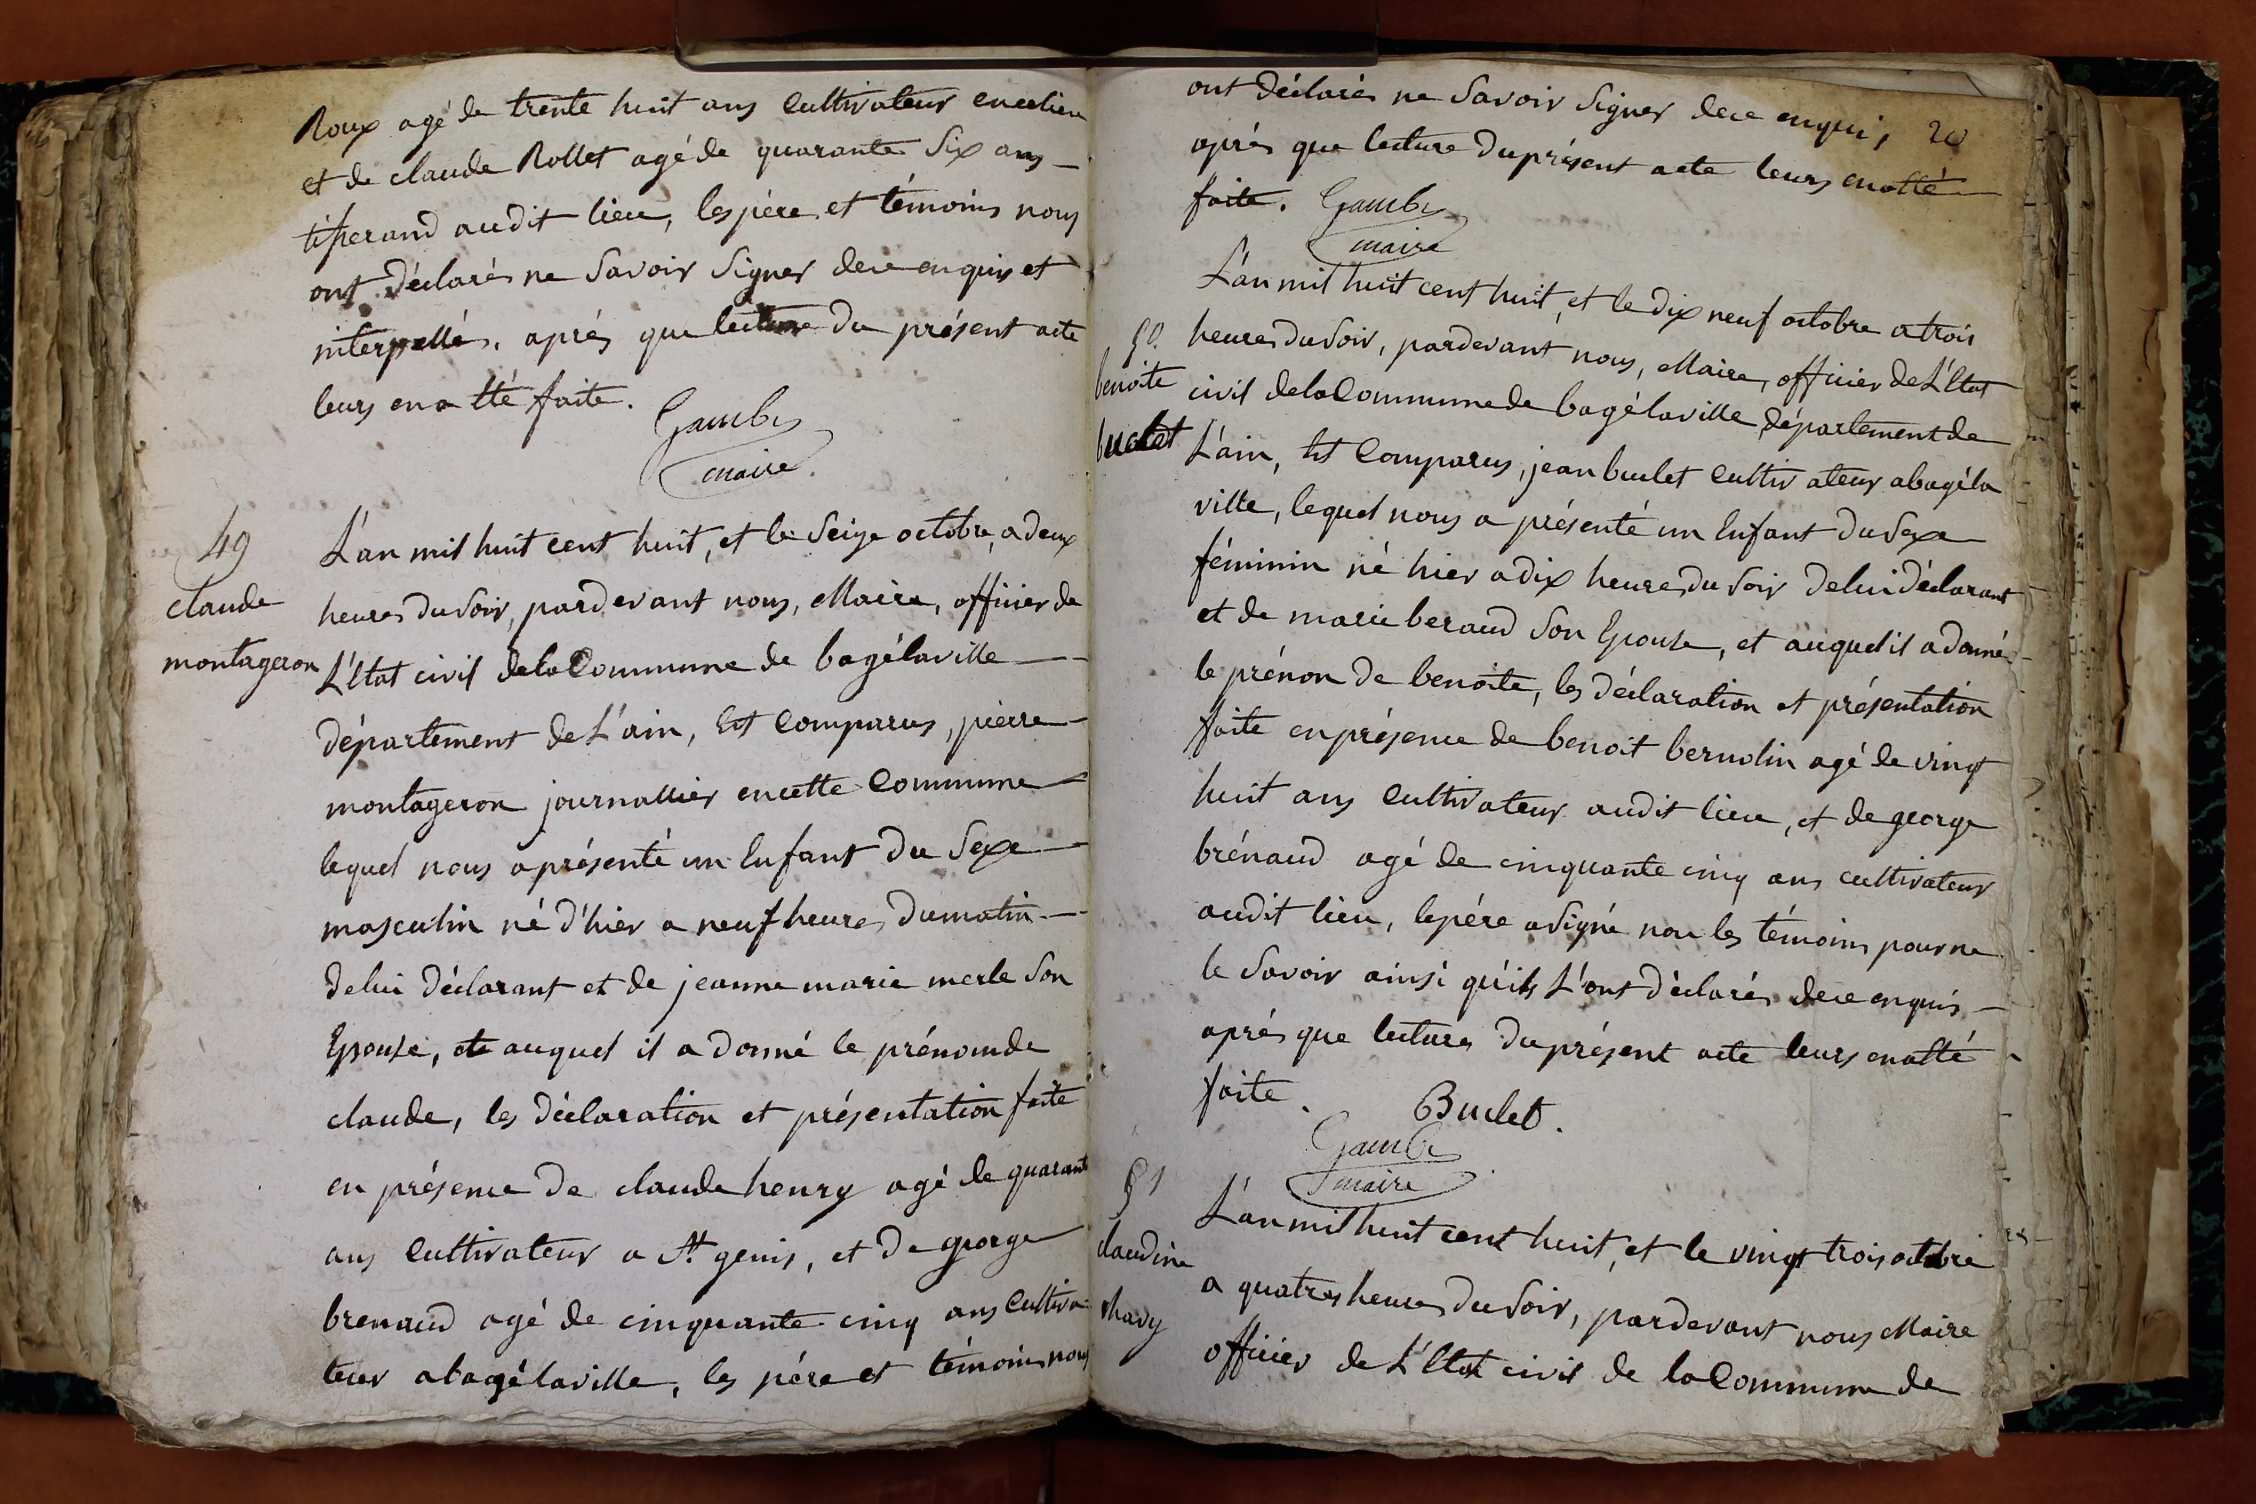 Roux agé de trente huit ans Cultivateur encelieu
et de claude Rollet agé de quarante Six ans
tisserand audit lieu, les père et témoins nous
ont déclarés ne Savoir Signer dece enquis et
interpellés, après que lecture du présent acte
leurs en a été faite.
Gambi
maire.
49
claude
montageron
L'an mil huit cent huit, et le Seize octobre, a deux
heures du Soir, pardevant nous, Maire, officier de
L'Etat civil dela Commune de bagélaville
département de L'ain, Est Comparus, pierre
montageron journallier encette Commune
lequel nous a présenté un Enfant du Sexe
masculin né d'hier a neuf heures dumatin
delui déclarant et de jeanne marie merle Son
Epouse, et auquel il a donné le prénomde
claude, les déclaration et présentation faite
en présence de claude henry agé de quarante
ans Cultivateur a St. genis, et de george
brenaud agé de cinquante cinq ans Cultiva-
teur abagélaville, les père et témoins nous
ont déclarés ne Savoir Signer dece enquis, 20
après que lecture duprésent acte leurs enaété
faite. Gambi
maire
50.
benoite
buclet
L'an mil huit cent huit, et le dix neuf octobre a trois
heures du Soir, pardevant nous, Maire, officier de L'Etat
civil dela Commune de bagélaville, département de
L'ain, Est Comparus, jean buclet Cultivateur abagéla
ville, lequel nous a présenté un Enfant du Sexe
féminin né hier a dix heures du Soir delui déclarant
et de marie beraud Son Epouse, et auquel il a donné
le prénon de benoite, les déclaration et présentation
faite enprésence de benoit bernolin agé de vingt
huit ans Cultivateur audit lieu, et de george
brénaud agé de cinquante cinq ans cultivateur
audit lieu, lepére a signé non les témoins pour ne
le Savoir ainsi qu'ils L'ont déclarés dece enquis
après que lecture duprésent acte leurs enaété
faite.
Buclet.
Gambi
maire
51
claudine
chavy
L'an mil huit cent huit, et le vingt trois octobre
a quatres heures du Soir, pardevant nous Maire
officier de L'Etat civil de la Commune de